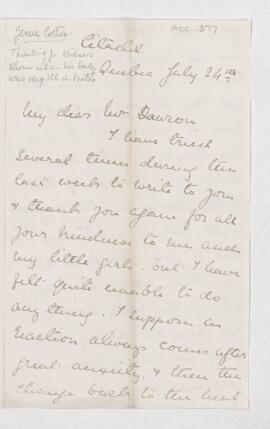 Jessie Cotton.
Acc-1377
Thanking for kindness
shown when her baby
was very ill
Citadel
Quebec July 24th
My dear Mr Dawson
I have tried
several times during the
last week to write to you
& thank you again for all
your kindness to me and
my little girls. but I have
felt quite unable to do
any thing. I suppose an
reaction always comes after
great anxiety, & then the
change back to the heat